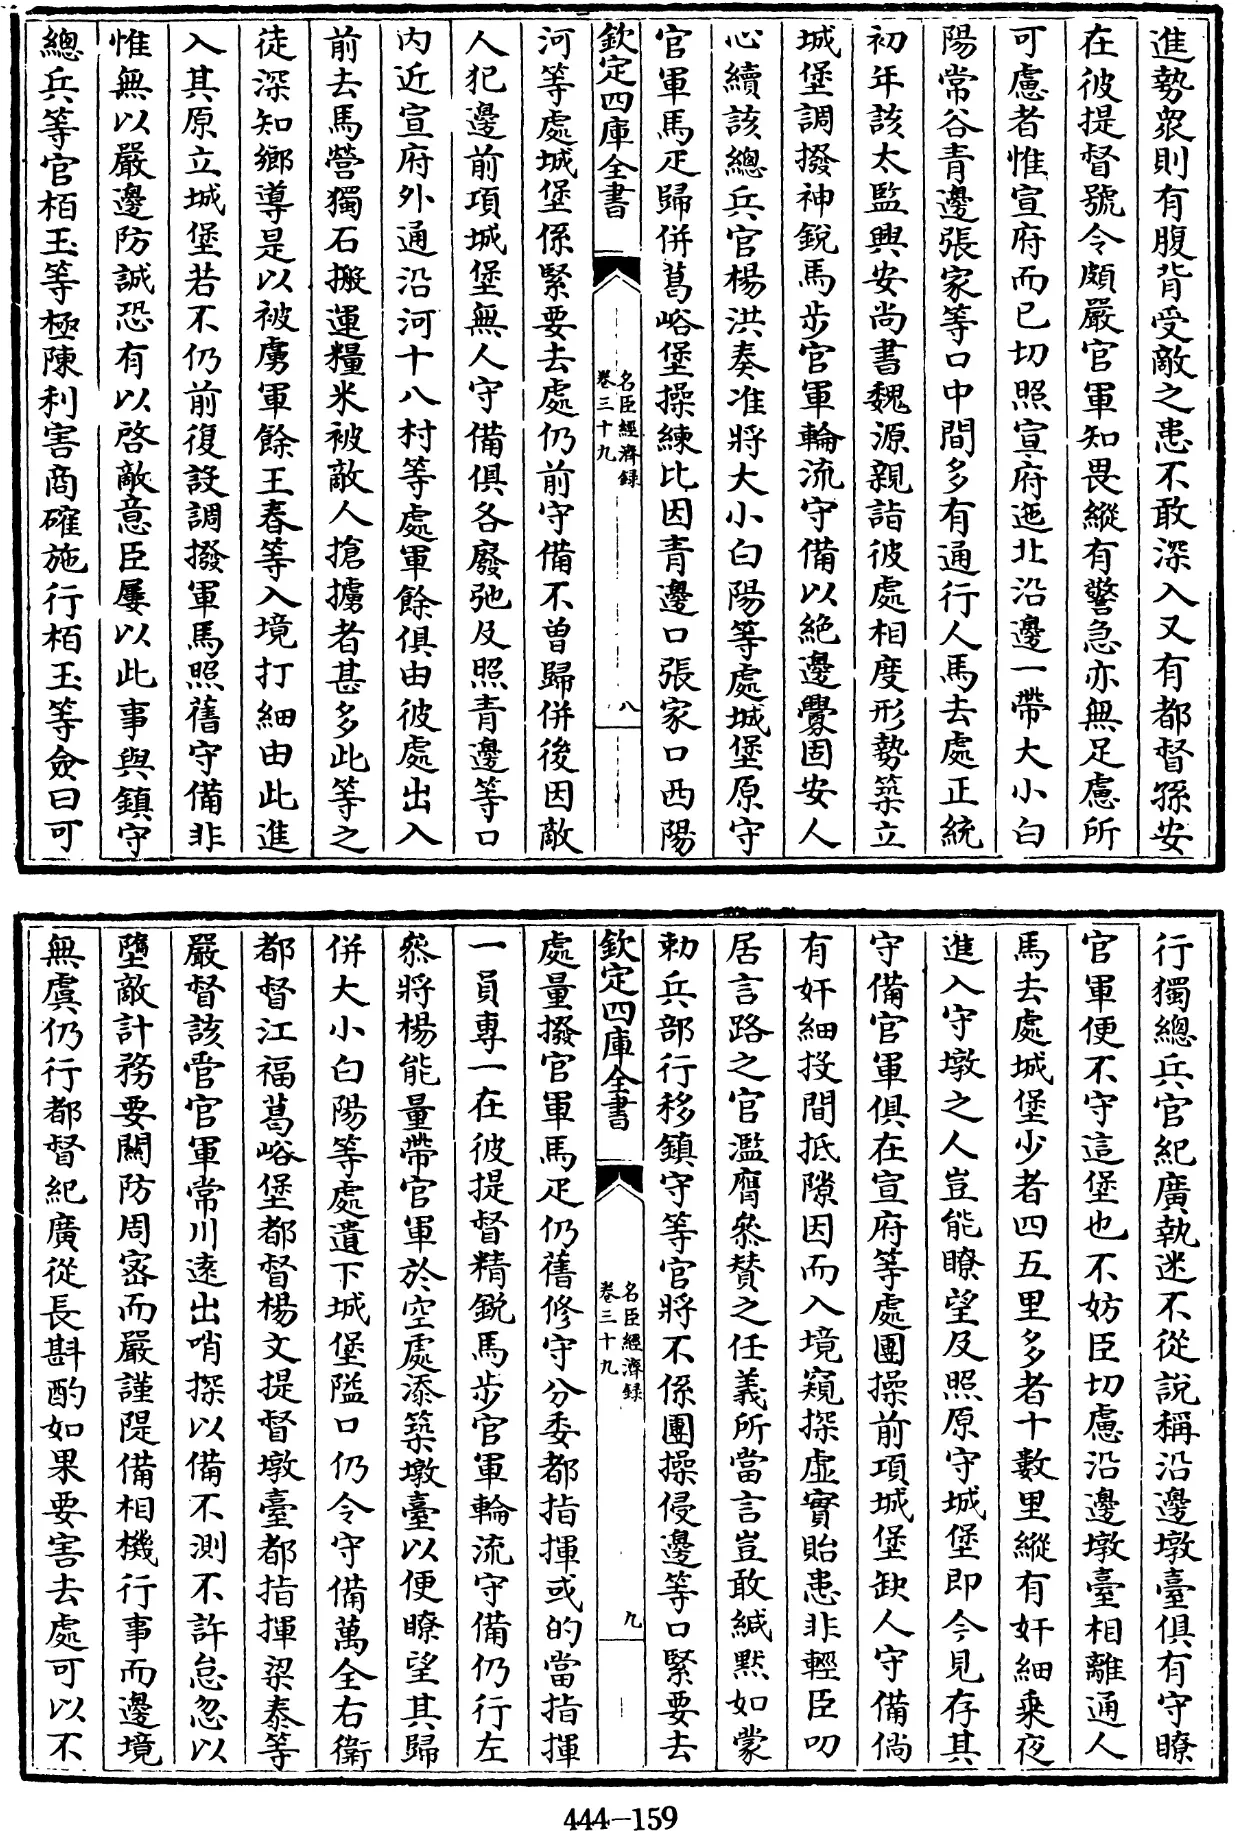 進勢衆則有腹背受敵之患不敢深入又有都督孫安
在彼提督號令頗嚴官軍知畏縱有警急亦無足慮所
可慮者惟宣府而已切照宣府迤北沿邊一帶大小白
陽常谷青邊張家等口中間多有通行人馬去處正統
初年該太監興安尚書魏源親詣彼處相度形勢築立
城堡調撥神銳馬步官軍輪流守備以絕邊釁固安人
心續該總兵官楊洪奏准將大小白陽等處城堡原守
官軍馬疋歸併葛峪堡操練比因青邊口張家口西陽
欽定四庫全書
名臣經濟録
卷三十九
八
河等處城堡係緊要去處仍前守備不曾歸併後因敵
人犯邊前項城堡無人守備俱各廢弛及照青邊等口
内近宣府外通沿河十八村等處軍餘俱由彼處出入
前去馬營獨石搬運糧米被敵人搶擄者甚多此等之
徒深知鄉導是以被虜軍餘王春等入境打細由此進
入其原立城堡若不仍前復設調撥軍馬照舊守備非
惟無以嚴邊防誠恐有以啓敵意臣屢以此事與鎮守
總兵等官栢玉等極陳利害商確施行栢玉等僉曰可
行獨總兵官紀廣執迷不從說稱沿邊墩臺俱有守瞭
官軍便不守這堡也不妨臣切慮沿邊墩臺相離通人
馬去處城堡少者四五里多者十數里縱有奸細乗夜
進入守墩之人豈能瞭望及照原守城堡即今見存其
守備官軍俱在宣府等處團操前項城堡缺人守備倘
有奸細投間抵隙因而入境窺探虛實貽患非輕臣叨
居言路之官濫膺叅賛之任義所當言豈敢緘默如蒙
勅兵部行移鎮守等官將不係團操侵邊等口緊要去
欽定四庫全書
名臣經濟録
卷三十九
九
處量撥官軍馬疋仍舊修守分委都指揮或的當指揮
一員專一在彼提督精銳馬步官軍輪流守備仍行左
叅將楊能量帶官軍於空處添築墩臺以便瞭望其歸
併大小白陽等處遺下城堡隘口仍令守備萬全右衛
都督江福葛峪堡都督楊文提督墩臺都指揮梁泰等
嚴督該管官軍常川遠出哨探以備不測不許怠忽以
墮敵計務要關防周宻而嚴謹隄備相機行事而邊境
無虞仍行都督紀廣從長斟酌如果要害去處可以不
444-159